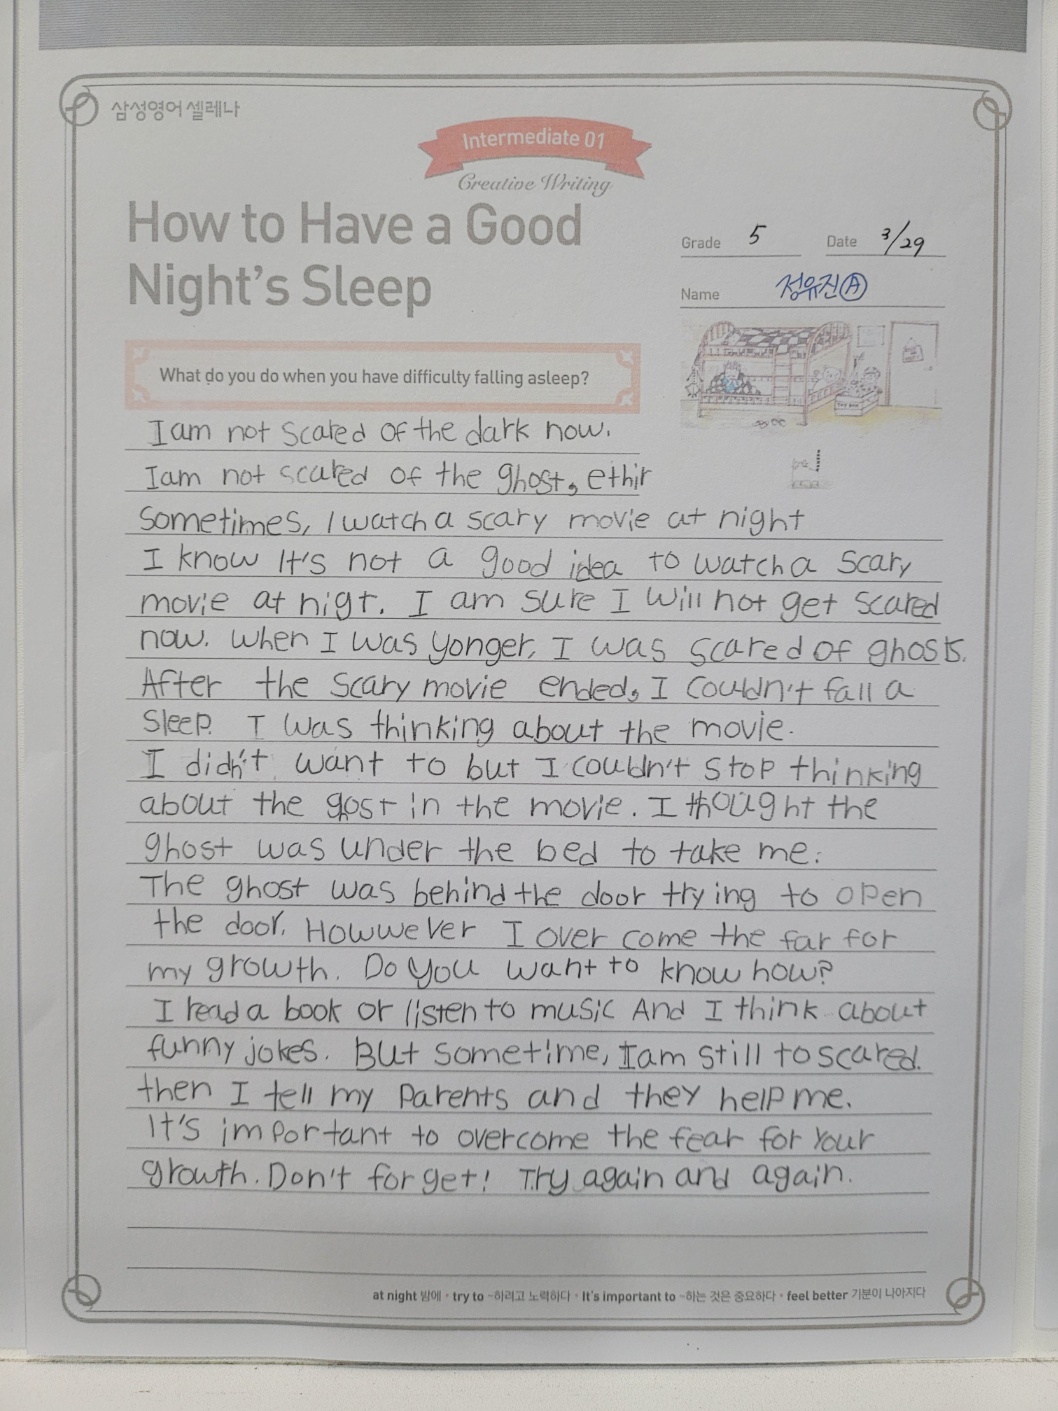 삼성영어 셀레나
Intermediate 01
Creative Writing
How to Have a Good
Night's Sleep
Grade 5 Date 3/29
Name 정유진Ⓐ
What do you do when you have difficulty falling asleep?
I am not scared of the dark now.
I am not scared of the ghost, ethir
Sometimes, I watch a scary movie at night
I know It's not a good idea to watch a scary
movie at nigt. I am sure I will not get scared
now. when I was yonger, I was scared of ghosts.
After the scary movie ended, I couldn't fall a
sleep. I was thinking about the movie.
I didn't want to but I couldn't stop thinking
about the gost in the movie. I thought the
ghost was under the bed to take me.
The ghost was behind the door trying to open
the door. Howwever I over come the far for
my growth. Do you want to know how?
I read a book or listen to music And I think about
funny jokes. But sometime, I am still to scared.
then I tell my parents and they help me.
It's important to overcome the fear for your
growth. Don't forget! Try again and again.
at night 밤에 · try to ~하려고 노력하다 · It's important to ~하는 것은 중요하다 · feel better 기분이 나아지다